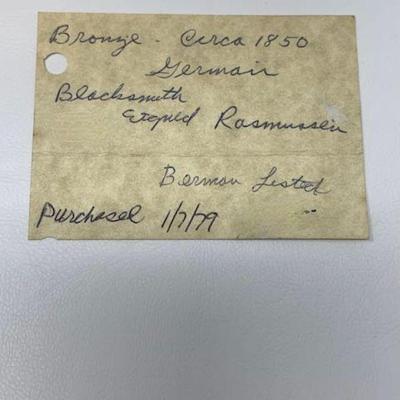 Bronze - Circa 1850
German
Blacksmith
Rasmussen
Berman Listed
Purchased 1/7/79